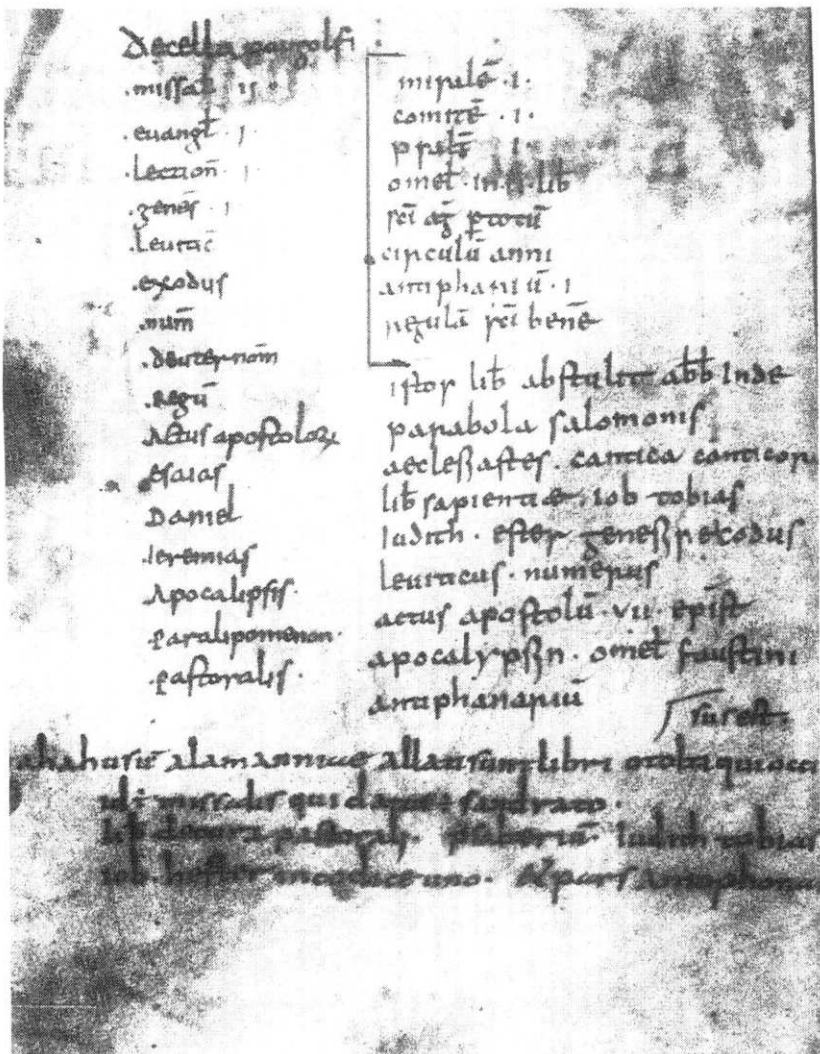 De cella paugolfi
.missał ii.
.euangł .i.
.Lection̄ .i.
.genes̄ .i
.Leuitic̄
.exodus
.num̄
.deuternom̄
.Regū
Actus apostoloꝝ
esaias
Daniel
Ieremias
Apocalipsis.
.Paralipomenon.
.Pastoralis.
misalē .i.
comitē .i.
psaltē .i.
omeł .in .ii. lib̄
sc̄i aḡ ꝑtotū
circulū anni
antiphanariū .i
regulā sc̄i benē
istos lib̄ abstulit abb̄ Inde
parabola salomonis
aeclesiastes . cantica canticoru
lib̄ sapientiae . iob tobias
Iudith . ester genesis exodus
leuiticus . numerus
actus apostolū . vii . epist̄
apocalypsin . omeł faustini
antiphanariū
alamannicę allati sunt libri otolti qui
missalis qui datus ÷ sandrato.
lib̄ pastoral . psalteriū . Iudith tobias
iob . hester in codice uno . pars